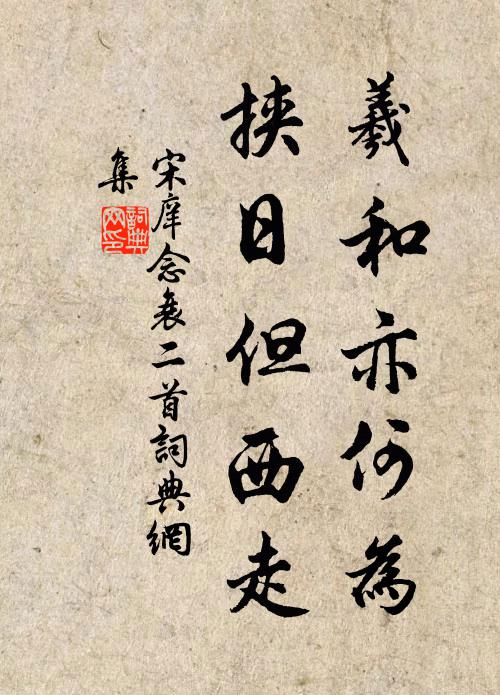 羲和亦何為
挾日但西走
宋庠念衰二首詞典網
集
詞典网印